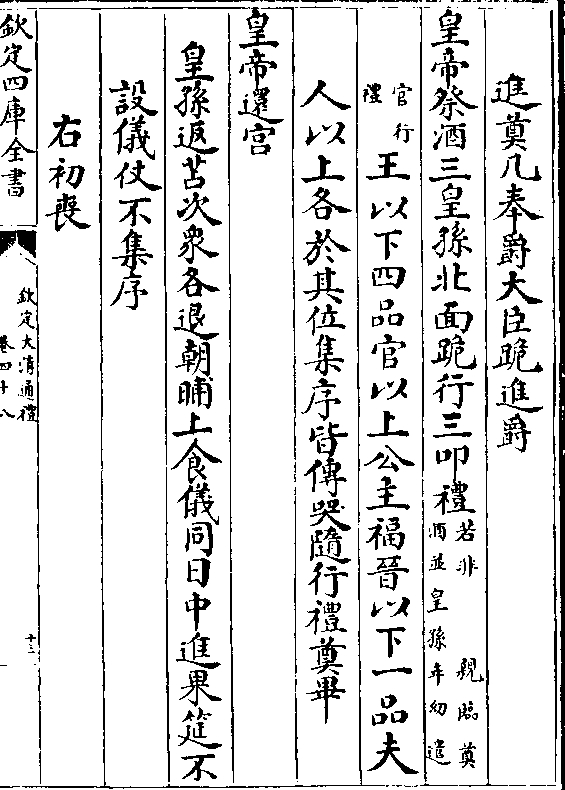 進奠几奉爵大臣跪進爵
皇帝祭酒三皇孫北面跪行三叩禮若非親臨奠酒並皇孫年幼遣
官行禮王以下四品官以上公主福晉以下一品夫
人以上各於其位集序皆傳哭隨行禮奠畢
皇帝還宮
皇孫返苫次衆各退朝晡上食儀同日中進果筵不
設儀仗不集序
右初喪
欽定四庫全書
欽定大清通禮
卷四十八
十三